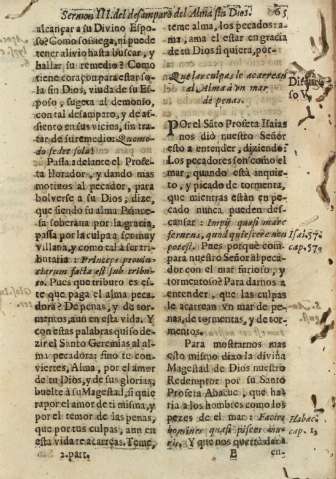 Sermon III. del desamparo del Alma sin Dios. 65
alcançar a su Divino Espo-
so? Como sossiega, ni puede
tener alivio hasta buscar, y
hallar su remedio? Como
tiene coraçon para estar so-
la sin Dios, viuda de su Es-
poso, sugeta al demonio,
con tal desamparo, y de as-
siento en sus vicios, sin tra-
tar de su remedio: Quomo-
do sedet sola?
Passa adelante el Profe-
ta llorador, y dando mas
motivos al pecador, para
bolverse a su Dios, dize,
que siendo su alma Prince-
sa soberana por la gracia,
passa por la culpa à ser muy
Villana, y como tal a ser tri-
butaria: Princeps provin-
ciarum facta est sub tribu-
to. Pues que tributo es es-
te que paga el alma peca-
dora? De penas, y de tor-
mentos, aun en esta vida. Y
con estas palabras quiso de-
zir el Santo Geremias al al-
ma pecadora: sino te con-
viertes, Alma, por el amor
de tu Dios, y de sus glorias;
buelve à su Magestad, si quie-
ra por el temor de las penas,
que por tus culpas, aun en
esta vida te acarreas. Teme,
2. part.
teme alma, los pecados ra-
ma, ama el estar en gracia
de tu Dios si quiera, por-
Que las culpas le acarrean
al Alma à vn mar
de penas.
Discur-
so V.
POr el Sāto Profeta Isaias
nos diò nuestro Señor
esto a entender, diziendo:
Los pecadores son como el
mar, quando està inquie-
to, y picado de tormenta,
que mientras estàn en pe-
cado nunca pueden des-
cansar: Impij quasi mare
fervens, quod quiescere non
potest. Pues porquè com-
para nuestro Señor al peca-
dor con el mar furioso, y
tormentoso? Para darnos a
entender, que las culpas
le acarrean vn mar de pe-
nas, de tormentas, y de tor-
mentos.
Isai. 57.
cap. 57.
Para mostrarnos mas
esto mismo dixo la divina
Magestad de Dios nuestro
Redemptor por su Santo
Profeta Abacuc, que ha-
ria a los hombres como los
pezes de el mar: Facies
homines quasi pisces ma-
ris. Y que nos querrà dar à
Habac.
cap. 1.
E
en-